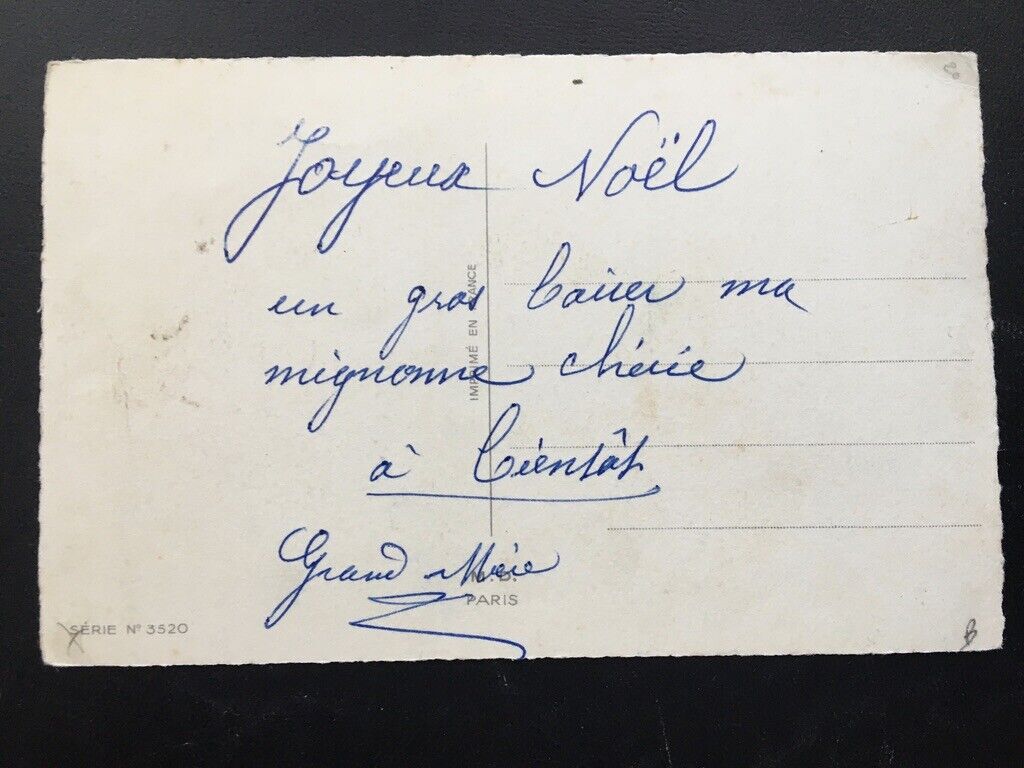 Joyeux Noël
un gros baiser ma
mignonne chérie
à bientôt
Grand Mère
IMPRIMÉ EN FRANCE
M.D.
PARIS
SÉRIE Nº 3520